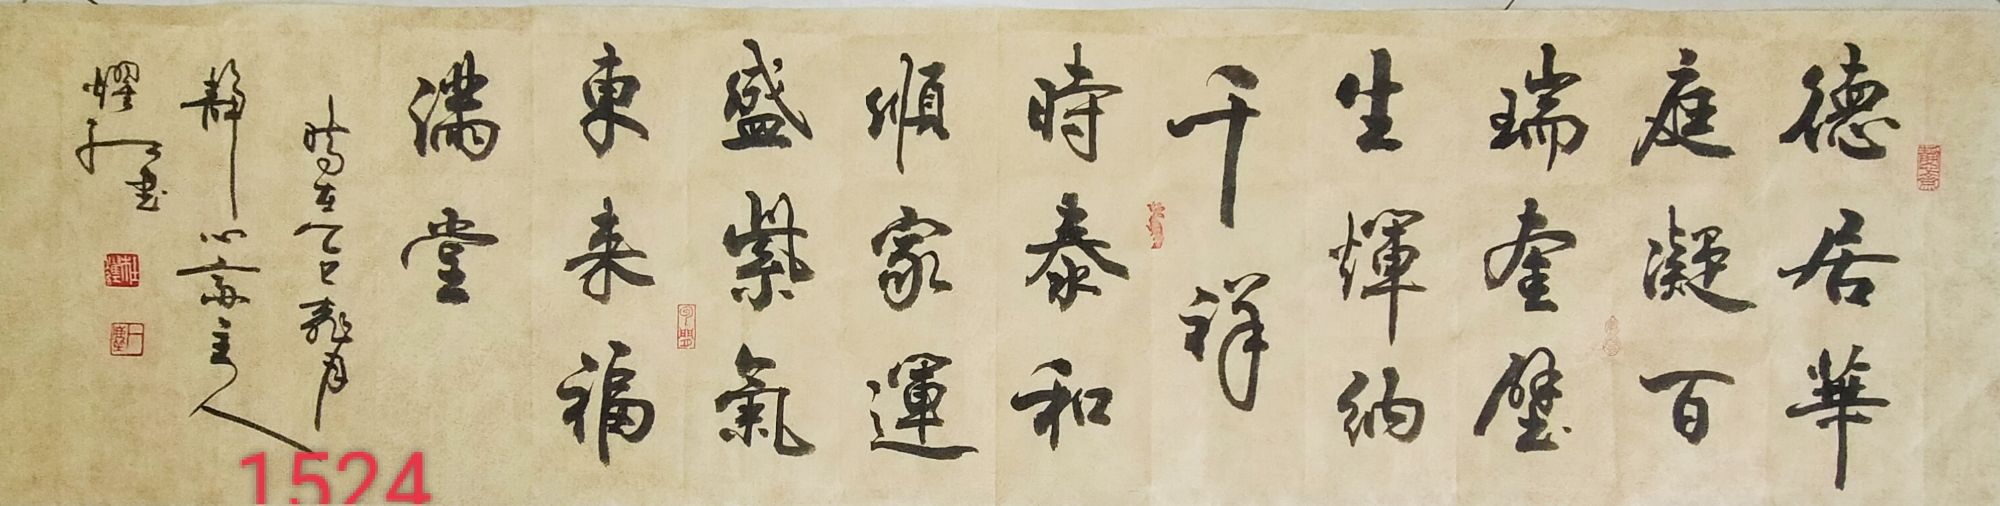 德居華
庭凝百
瑞奎璧
生輝納
千祥
時泰和
順家運
盛紫氣
東来福
満堂
時在乙巳龍月
静心斎主人
耀红书
1524